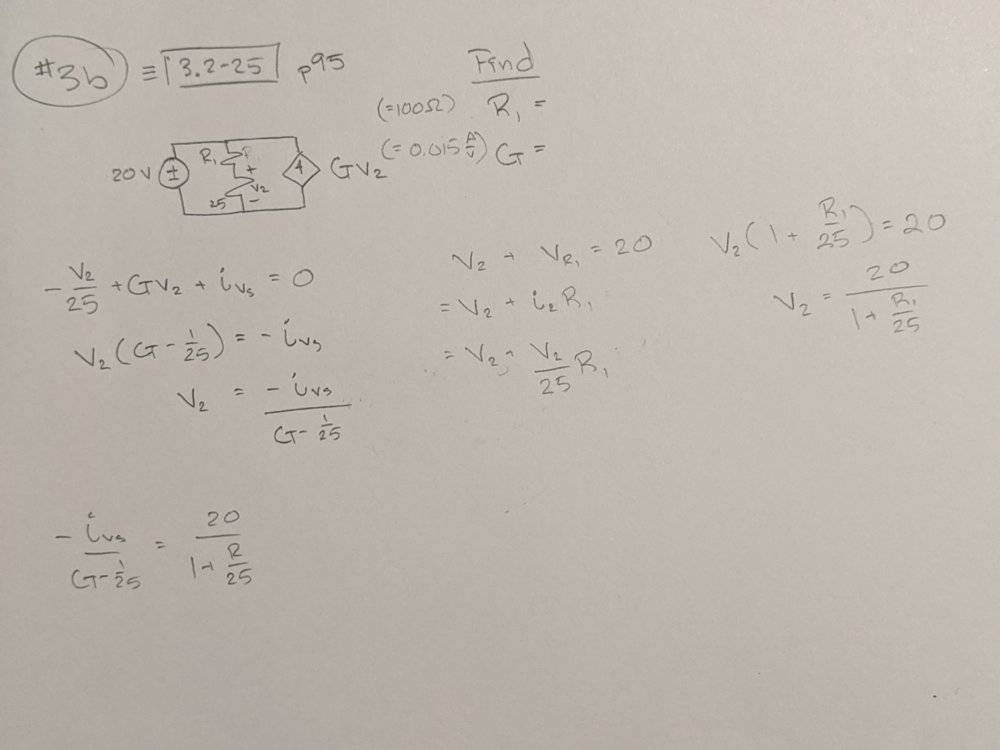 #3b ≡ 3.2-25 p95
Find
(=100Ω) R₁ =
(=0.015 A/V) G =
20V ± R₁ + V₂ - 25 GV₂
-V₂/25 + GV₂ + i_vs = 0
V₂(G - 1/25) = -i_vs
V₂ = -i_vs / (G - 1/25)
V₂ + V_R₁ = 20
= V₂ + i₂R₁
= V₂ + V₂/25 R₁
V₂(1 + R₁/25) = 20
V₂ = 20 / (1 + R₁/25)
-i_vs / (G - 1/25) = 20 / (1 + R/25)